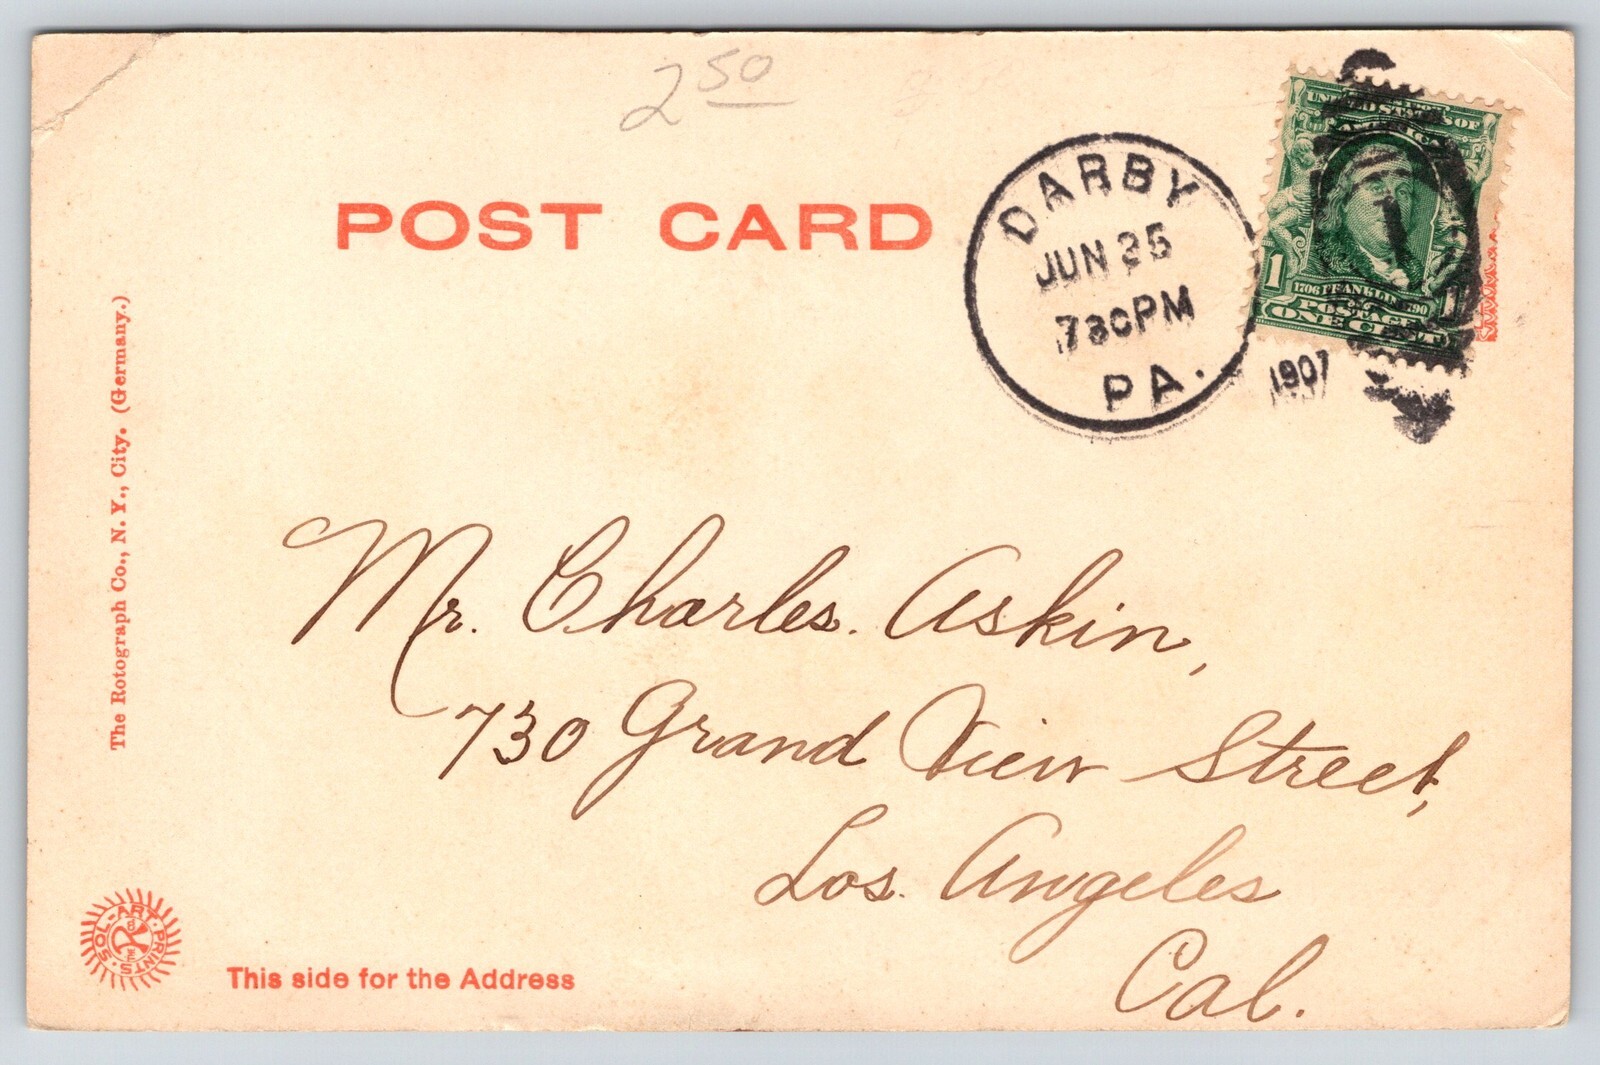 2 50
POST CARD
DARBY
JUN 25
730PM
PA.
1907
UNITED STATES OF
AMERICA
1
1
1706 FRANKLIN 1790
POSTAGE
ONE CENT
The Rotograph Co., N. Y., City. (Germany.)
Mr. Charles. Askin,
730 Grand View Street,
Los. Angeles
Cal.
SOL-ART PRINTS
This side for the Address